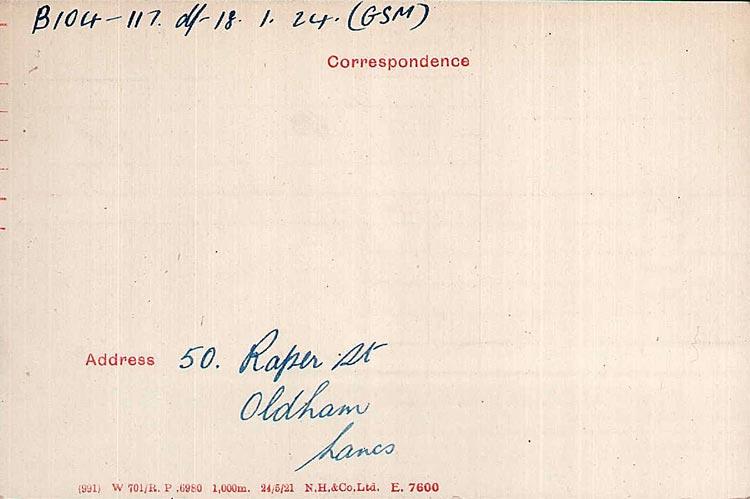 B104-117. df-18. 1. 24. (GSM)
Correspondence
Address 50. Raper St
Oldham
Lancs
(991) W 701/R. P .6980 1,000m. 24/5/21 N.H.&Co.Ltd. E. 7600